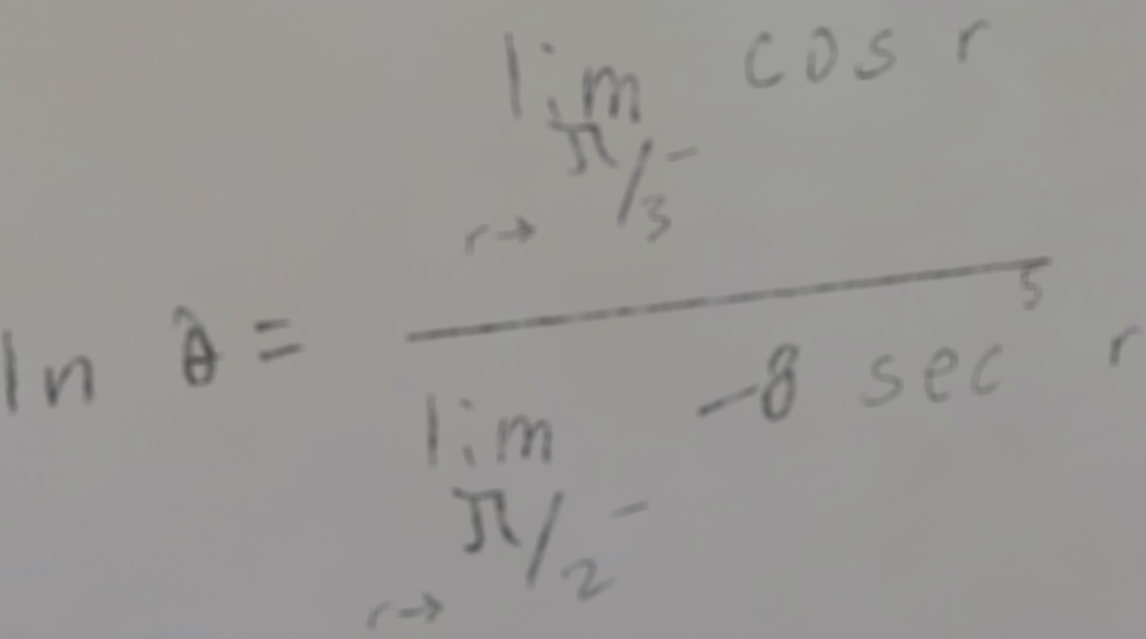 ln θ = \frac{\lim_{r \to \pi/3^-} \cos r}{\lim_{r \to \pi/2^-} -8 \sec^5 r}